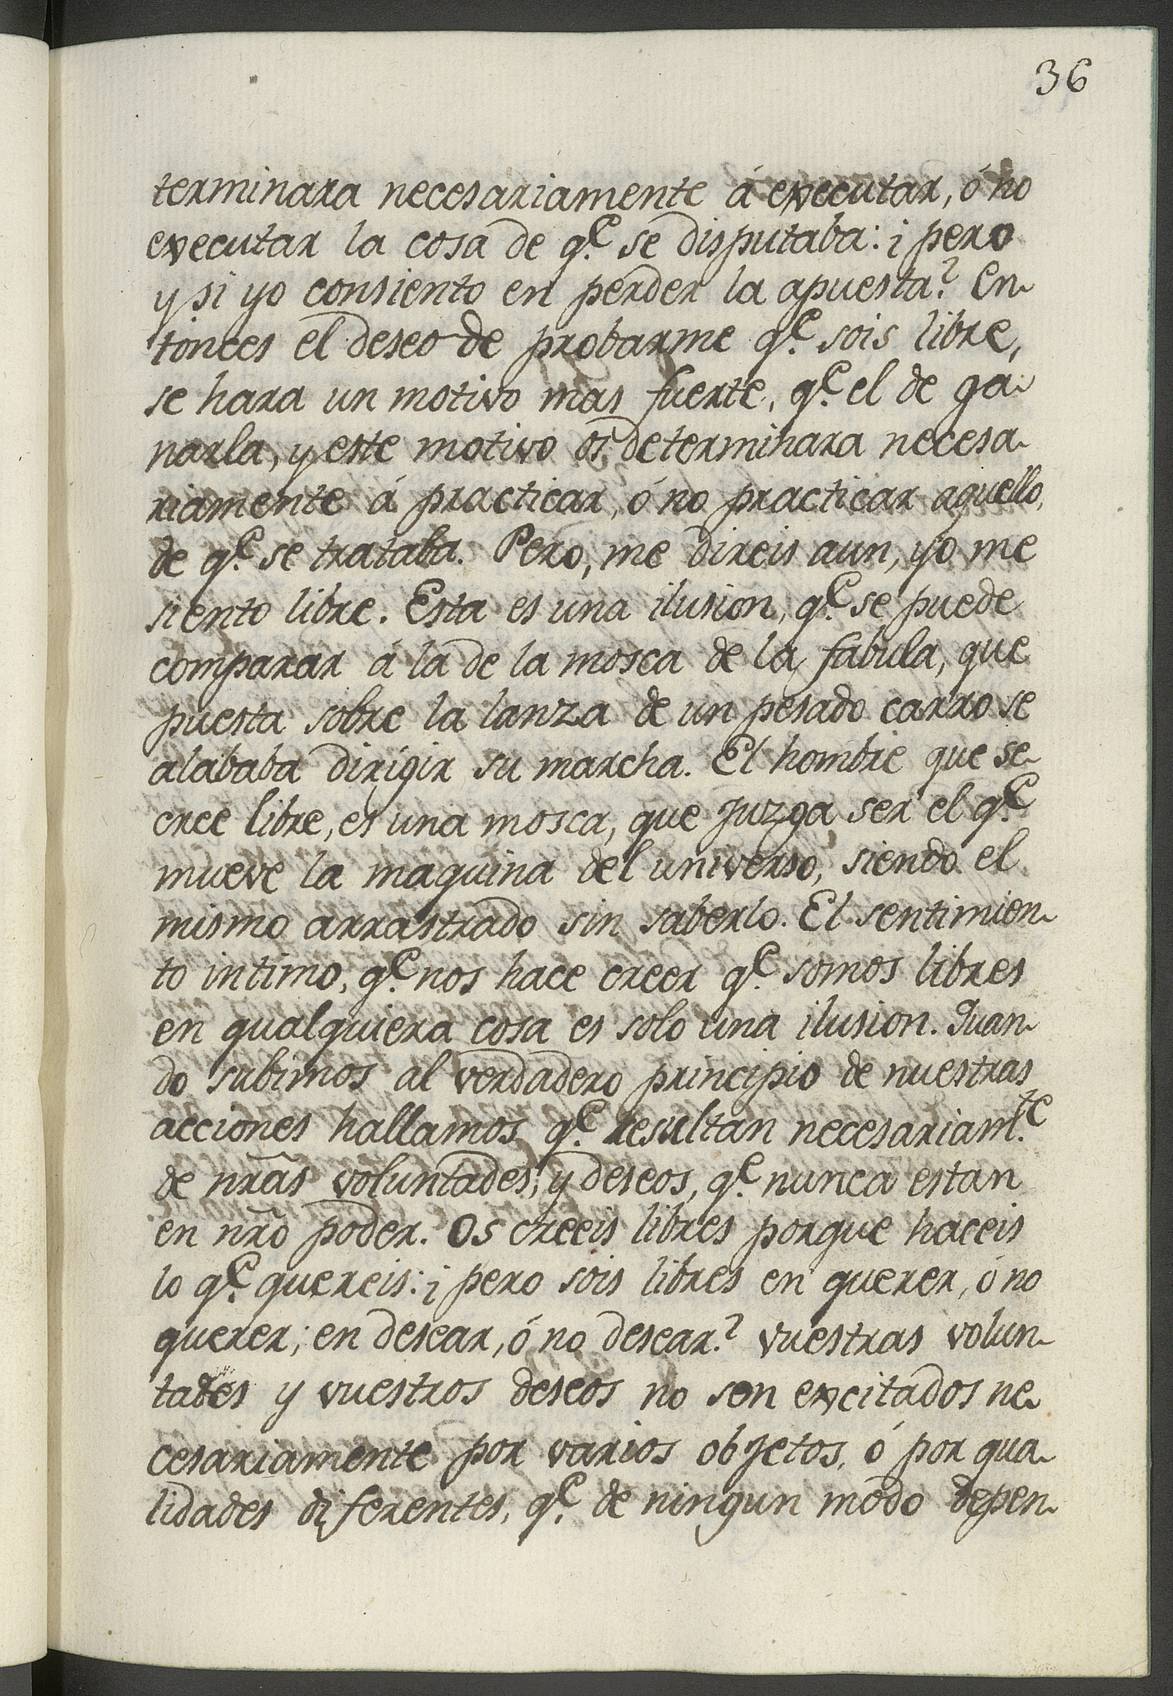 36
terminara necesariamente á executar, ó no
executar la cosa de q.e se disputaba: ¿ pero
y si yo consiento en perder la apuesta? En-
tonces el deseo de probarme q.e sois libre,
se hara un motivo mas fuerte, q.e el de ga-
narla, y este motivo os determinara necesa-
riamente á practicar, ó no practicar aquello,
de q.e se trataba. Pero, me direis aun, yo me
siento libre. Esta es una ilusion, q.e se puede
comparar á la de la mosca de la fabula, que
puesta sobre la lanza de un pesado carro se
alababa dirigir su marcha. El hombre que se
cree libre, es una mosca, que juzga ser el q.e
mueve la maquina del universo, siendo el
mismo arrastrado sin saberlo. El sentimien-
to intimo, q.e nos hace creer q.e somos libres
en qualquiera cosa es solo una ilusion. Quan-
do subimos al verdadero principio de nuestras
acciones hallamos q.e resultan necesariam.te
de nr̃as voluntades, y deseos, q.e nunca estan
en nr̃o poder. Os creeis libres porque haceis
lo q.e quereis: ¿ pero sois libres en querer, ó no
querer; en desear, ó no desear? vuestras volun-
tades y vuestros deseos no son excitados ne-
cesariamente por varios objetos, ó por qua-
lidades diferentes, q.e de ningun modo depen-